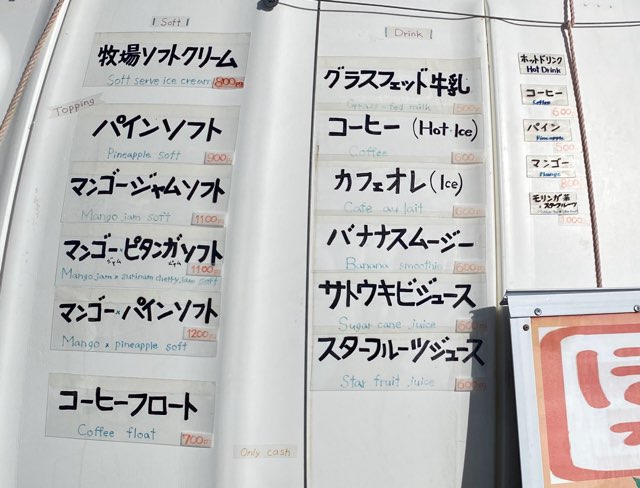 Soft
牧場ソフトクリーム
Soft serve ice cream 800円
Topping
パインソフト
Pineapple soft 900円
マンゴージャムソフト
Mango jam soft 1100円
マンゴージャム・ピタンガジャムソフト
Mango jam x surinam cherry jam soft 1100円
マンゴー×パインソフト
Mango × pineapple soft 1200円
コーヒーフロート
Coffee float 700円
Only cash
Drink
グラスフェッド牛乳
Grass-fed milk 500円
コーヒー (Hot・Ice)
Coffee 600円
カフェオレ (Ice)
Cafe au lait 600円
バナナスムージー
Banana smoothie 600円
サトウキビジュース
Sugar cane juice 600円
スターフルーツジュース
Star fruit juice 600円
ホットドリンク
Hot Drink
コーヒー
Coffee
600
パイン
Pineapple
マンゴー
Mango
800
モリンガ茶
×スターフルーツ